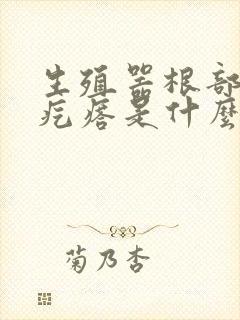 生殖器根部
疙瘩是什麼
菊乃杏